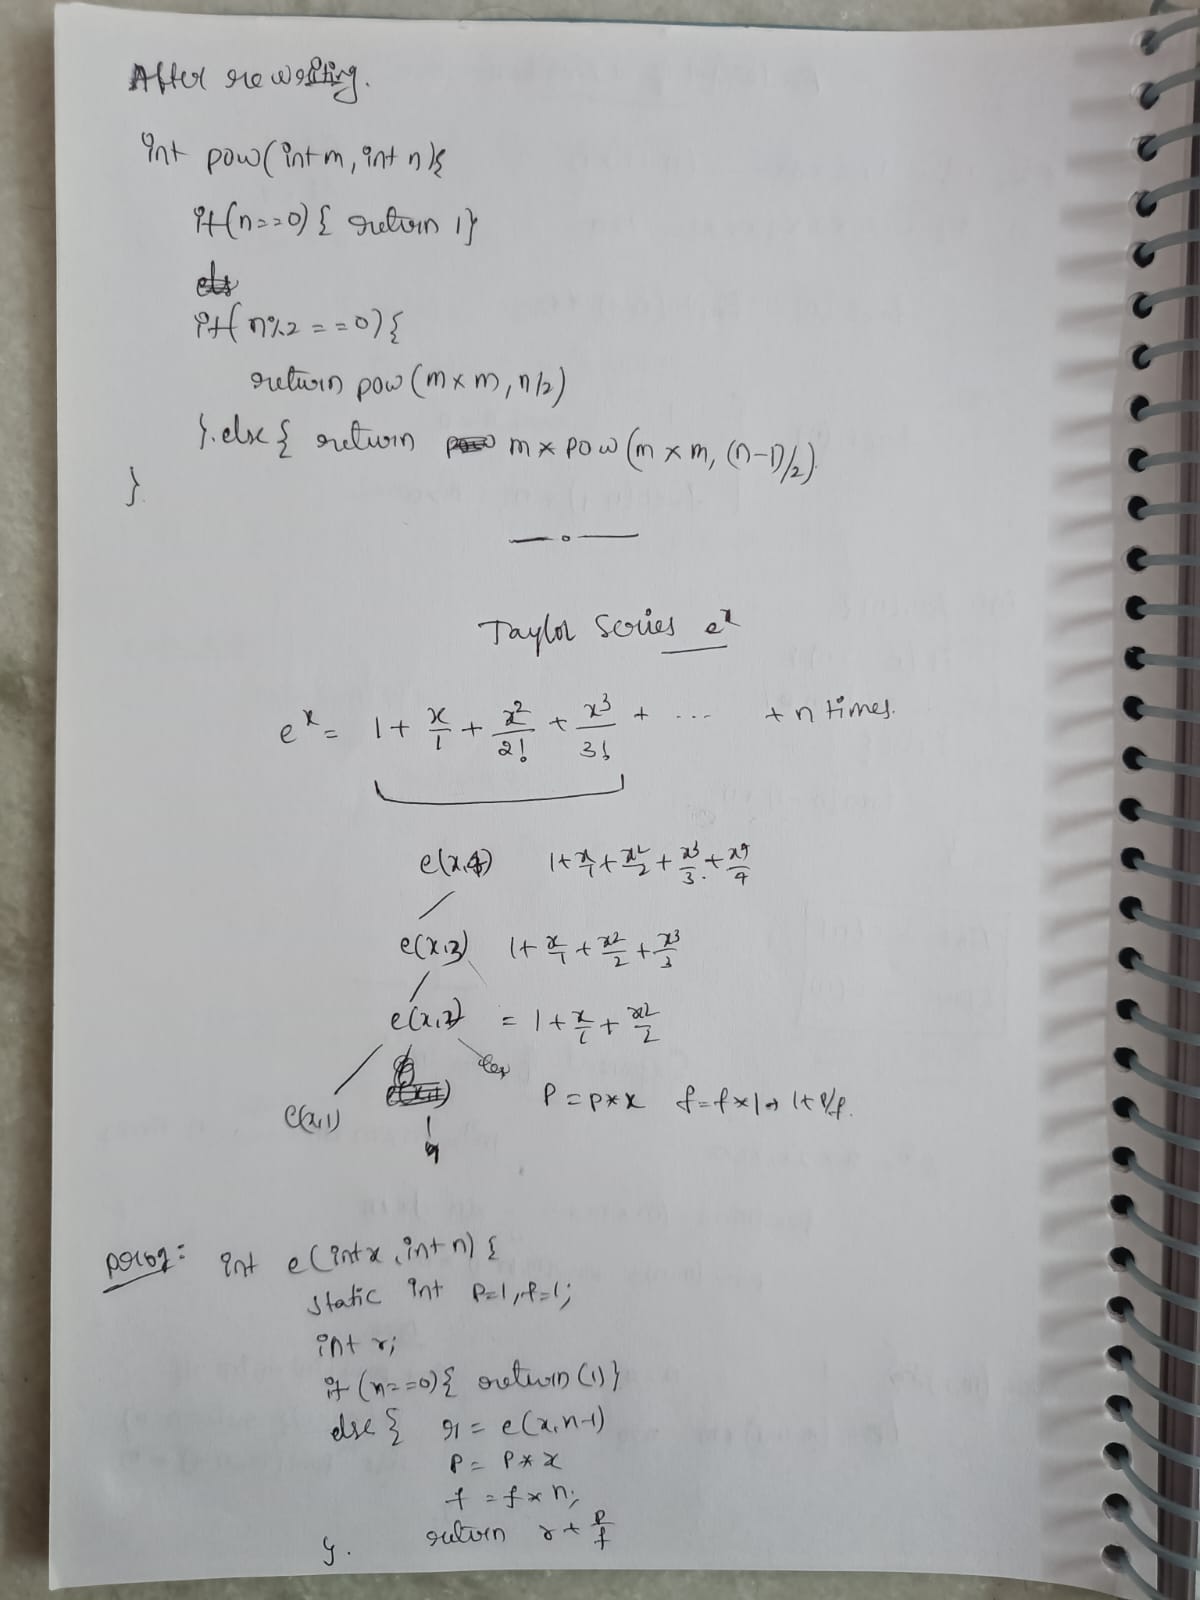 After rewriting.
int pow(int m, int n){
if(n==0){ return 1}
if(n%2==0){
return pow(m×m, n/2)
}.else{ return m × pow(m×m, (n-1)/2)
}
Taylor Series e^x
e^x = 1 + x/1 + x^2/2! + x^3/3! + ... + n times.
e(x,4) 1+x/1+x^2/2+x^3/3+x^4/4
e(x,3) 1+x/1+x^2/2+x^3/3
e(x,2) = 1+x/1+x^2/2
e(x,1)
P=P*x f=f×1→ 1+P/f.
prog: int e(int x, int n) {
static int P=1, f=1;
int r;
if (n==0){ return(1)}
else { r = e(x,n-1)
P = P*x
f = f×n;
return r + P/f
}.